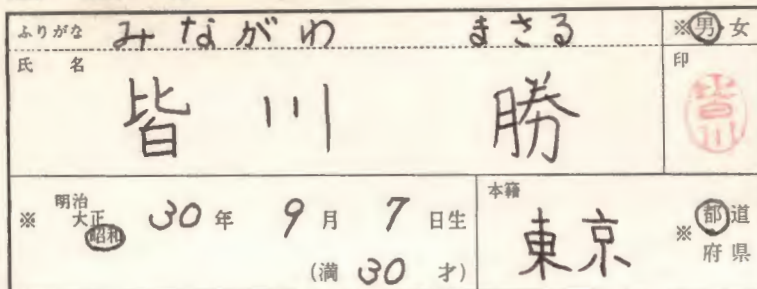 ふりがな みながわ まさる ※男・女
氏名 皆川 勝 印 皆川
※ 明治 大正 昭和 30年 9月 7日生 (満 30 才)
本籍 東京 ※ 都 道 府 県